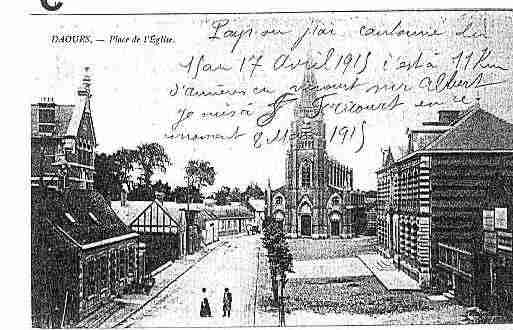 C
DAOURS. — Place de l'Église.
Pays ou j'ai cantonné du
15 au 17 Avril 1915 c'est à 11 Km
d'amiens en sur Albert
je suis à en ce
moment 8 Mai 1915